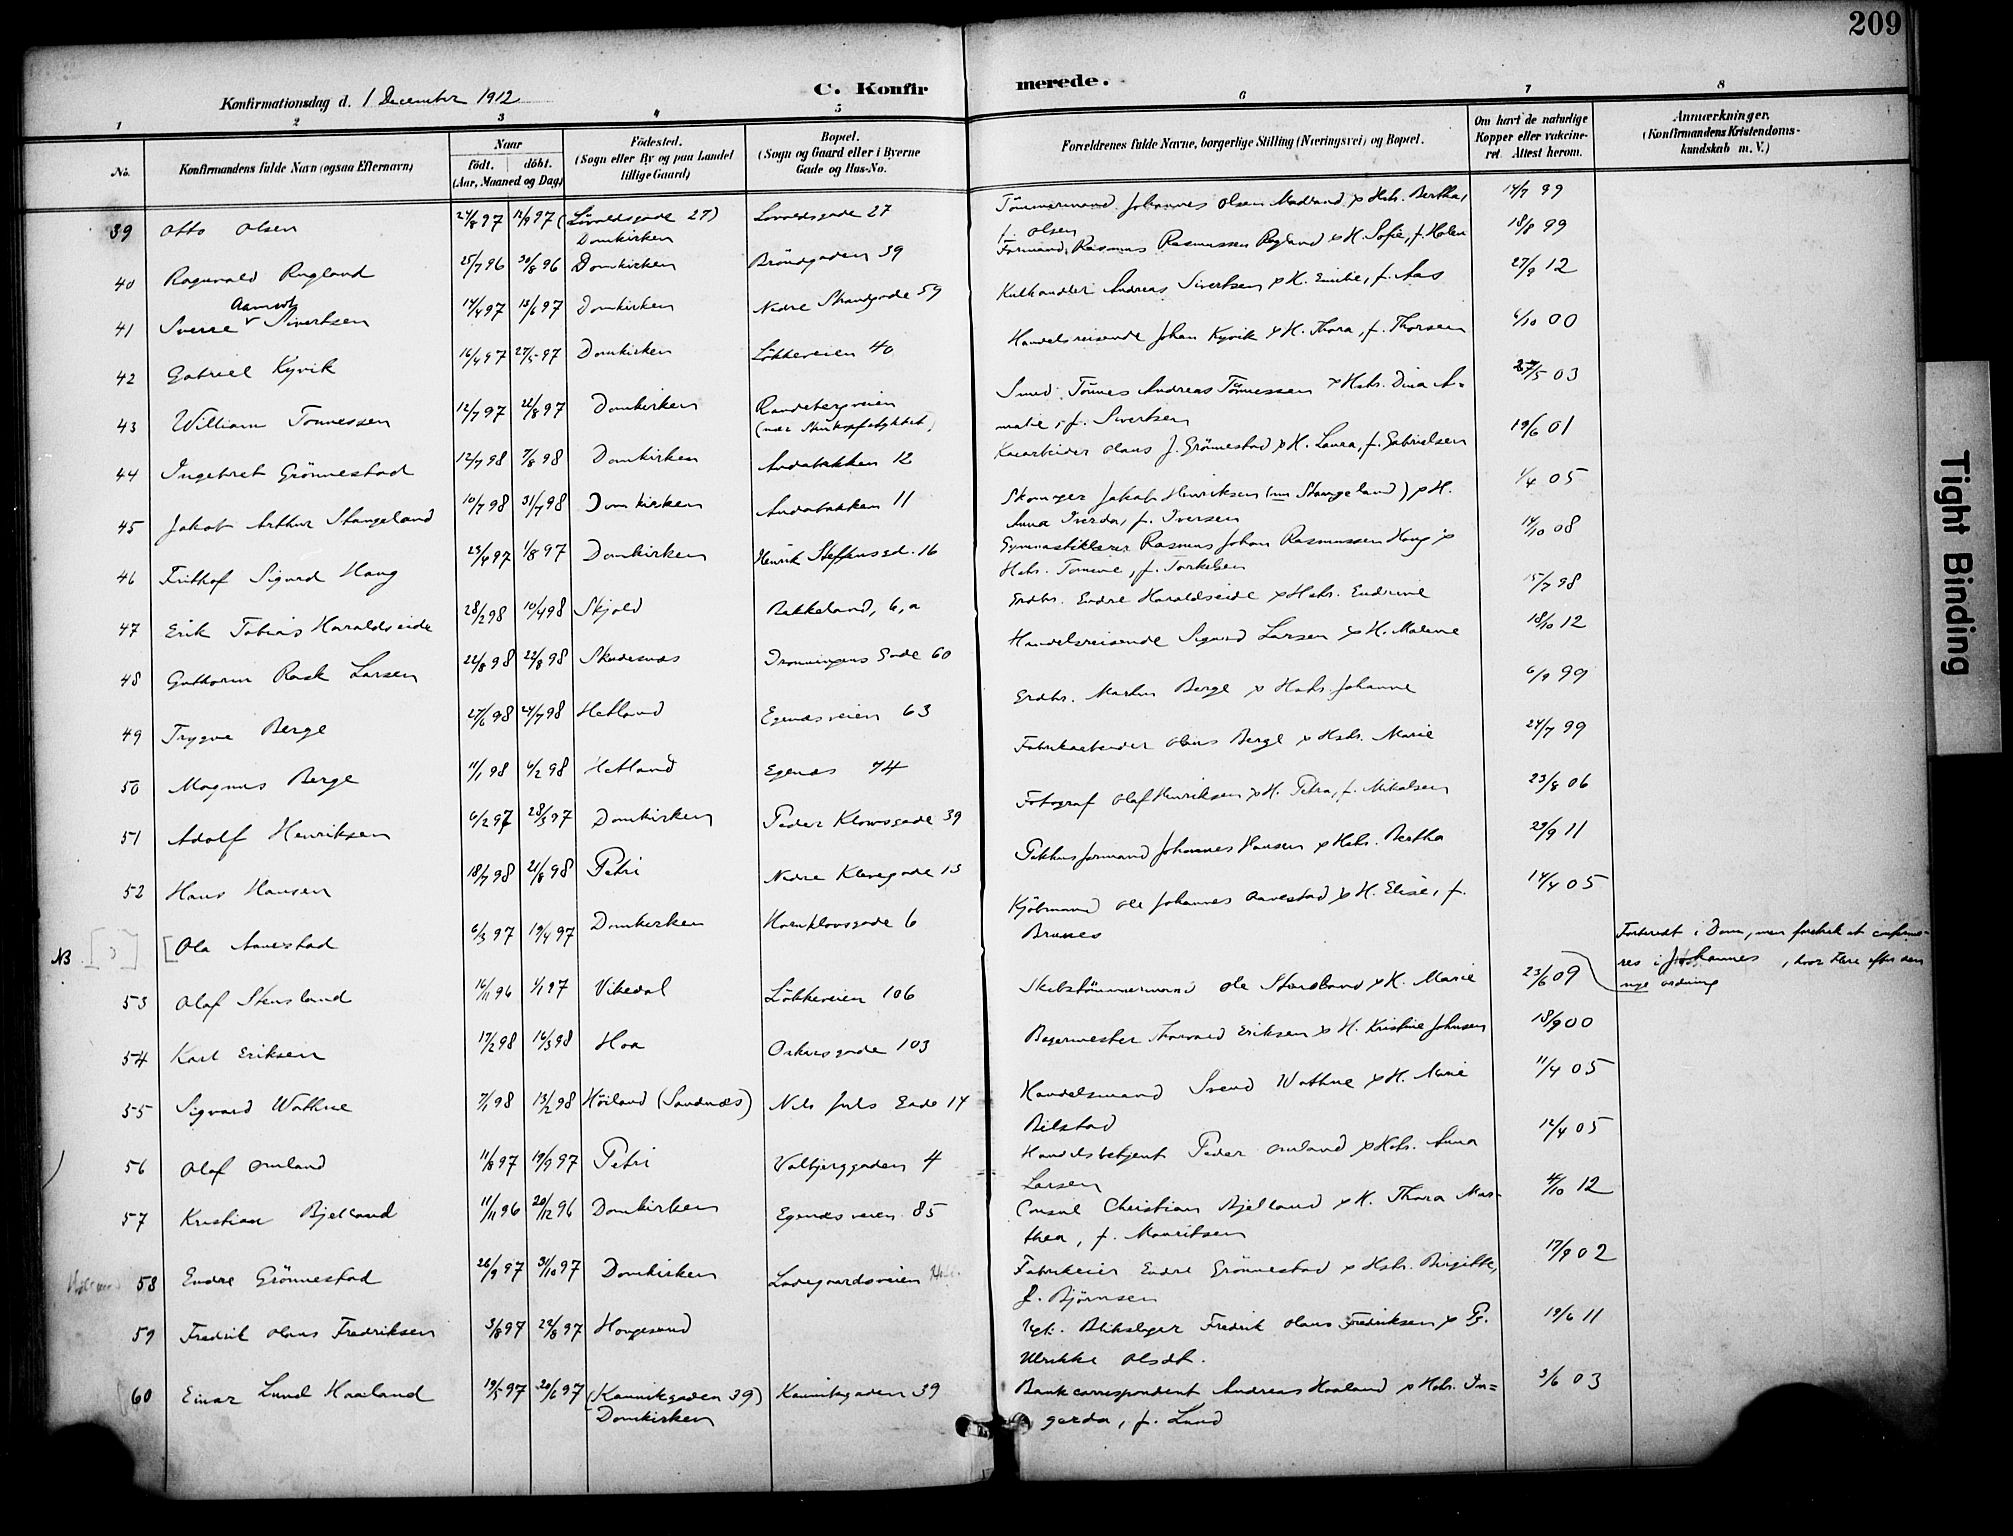 209
C. Konfirmerede.
Konfirmationsdag d. 1 December 1912
1 2 3 4 5 6 7 8
No.
Konfirmandens fulde Navn (ogsaa Efternavn)
Naar
födt. döbt.
(Aar, Maaned og Dag)
Födested.
(Sogn eller By og paa Landet
tillige Gaard)
Bopæl.
(Sogn og Gaard eller i Byerne
Gade og Hus-No.
Forældrenes fulde Navne, borgerlige Stilling (Næringsvei) og Bopæl.
Om havt de naturlige
Kopper eller vakcine-
ret. Attest herom.
Anmærkninger.
(Konfirmandens Kristendoms-
kundskab m. V.)
39 Otto Olsen 24/8 97 12/9 97 (Lövoldsgade 27) Lövoldsgade 27 Tömmermand Johannes Olsen & Hstr. Bertha, 14/7 99
Domkirken f. Olsen
40 Ragnvald Rugland 25/7 96 30/8 96 Domkirken Bröndgaden 39 Formand Rasmus Rasmussen Rugland & H. Sofie, f. Holen 18/8 99
41 Sverre Sivertsen 14/4 97 13/6 97 Domkirken Nedre Strandgade 59 Kulhandler Andreas Sivertsen & H. Emilie, f. Aas 27/9 12
42 Gabriel Kyvik 16/4 97 27/5 97 Domkirken Lökkeveien 40 Handelsreisende Johan Kyvik & H. Thora, f. Thorsen 6/10 00
43 William Tönnessen 12/7 97 22/8 97 Domkirken Randebergveien Smed Tönnes Andreas Tönnessen & Hstr. Dina A= 27/5 03
malie, f. Sivertsen
44 Ingebret Grönnestad 12/7 98 7/8 98 Domkirken Andabakken 12 Kaiarbeider Olaus J. Grönnestad & H. Laura, f. Gabrielsen 19/6 01
45 Jakob Arthur Stangeland 10/7 98 31/7 98 Domkirken Andabakken 11 Skomager Jakob Henriksen (nu Stangeland) & H. 1/4 05
Anna Iverda, f. Iversen
46 Frithof Sigurd Haug 23/4 97 1/8 97 Domkirken Henrik Steffensgd. 16 Gymnastiklærer Rasmus Johan Rasmussen Haug & 14/10 08
Hstr. Tomine, f. Torkelsen
47 Erik Tobias Haraldseide 28/2 98 10/4 98 Skjold Bakkeland, 6, a Grdbr. Endre Haraldseide & Hstr. Endrine 15/7 98
48 Guttorm Rask Larsen 22/8 98 Skudesnæs Dronningens Gade 60 Handelsreisende Sigurd Larsen & H. Malene 18/10 12
49 Trygve Berge 27/6 98 24/7 98 Hetland Egenæsveien 63 Grdbr. Martin Berge & Hstr. Johanne 6/9 99
50 Magnus Berge 11/1 98 6/2 98 Hetland Egenæs 74 Fabrikarbeider Olaus Berge & Hstr. Marie 24/7 99
51 Adolf Henriksen 6/2 97 28/3 97 Domkirken Peder Klowsgade 39 Fotograf Olaf Henriksen & H. Petra, f. Nikolsen 23/8 06
52 Hans Hansen 18/7 98 21/8 98 Petri Nedre Klevegade 13 Pakhusformand Johannes Hansen & Hstr. Bertha 23/9 11
NB [3] [Ola Aanestad 6/3 97 19/4 97 Domkirken Hornklovsgade 6 Kjöbmand Ole Johannes Aanestad & H. Elise, f. 14/4 05
Brunes
Forberedt i Dom, men foretrak at confirme-
res i Johannes, hvor flere efter den
nye ordning
53 Olaf Stensland 16/11 96 1/1 97 Vikedal Lökkeveien 106 Skibstömmermand Ole Stensland & H. Marie 23/6 09
54 Karl Eriksen 17/2 98 16/3 98 Haa 103 Bagermester Eriksen & H. Kristine Johnsen 18/9 00
55 Sigvard Wathne 7/1 98 13/2 98 Höiland (Sandnæs) Nils Juels Gade 14 Handelsmand Svend Wathne & H. Marie 11/4 05
Bilstad
56 Olaf Omland 11/8 97 19/9 97 Petri Valbjerggaden 4 Handelsbetjent Peder Omland & Hstr. Anna 12/4 05
Larsen
57 Kristian Bjelland 11/11 96 20/12 96 Domkirken Egenæsveien 85 Consul Christian Bjelland & H. Thora Mar- 4/10 12
thea, f. Mauritsen
58 Endre Grönnestad 26/9 97 31/10 97 Domkirken Ladegaardsveien Fabrikeier Endre Grönnestad & Hstr. Birgitte, 17/9 02
f. Björnsen
59 Fredrik Olaus Fredriksen 3/8 97 22/8 97 Haugesund Ugk. Blikslager Fredrik Olaus Fredriksen & Pg. 19/6 11
Ulrikke Olsdt.
60 Einar Lund Haaland 19/5 97 20/6 97 (Kannikgaden 39) Kannikgaden 39 Bankcorrespondent Andreas Haaland & Hstr. In= 3/6 03
Domkirken gerda, f. Lund
Tight Binding